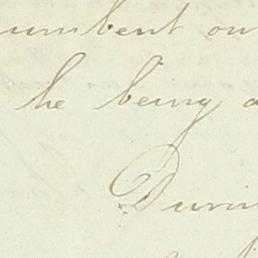 umbent on
he being a
Durin